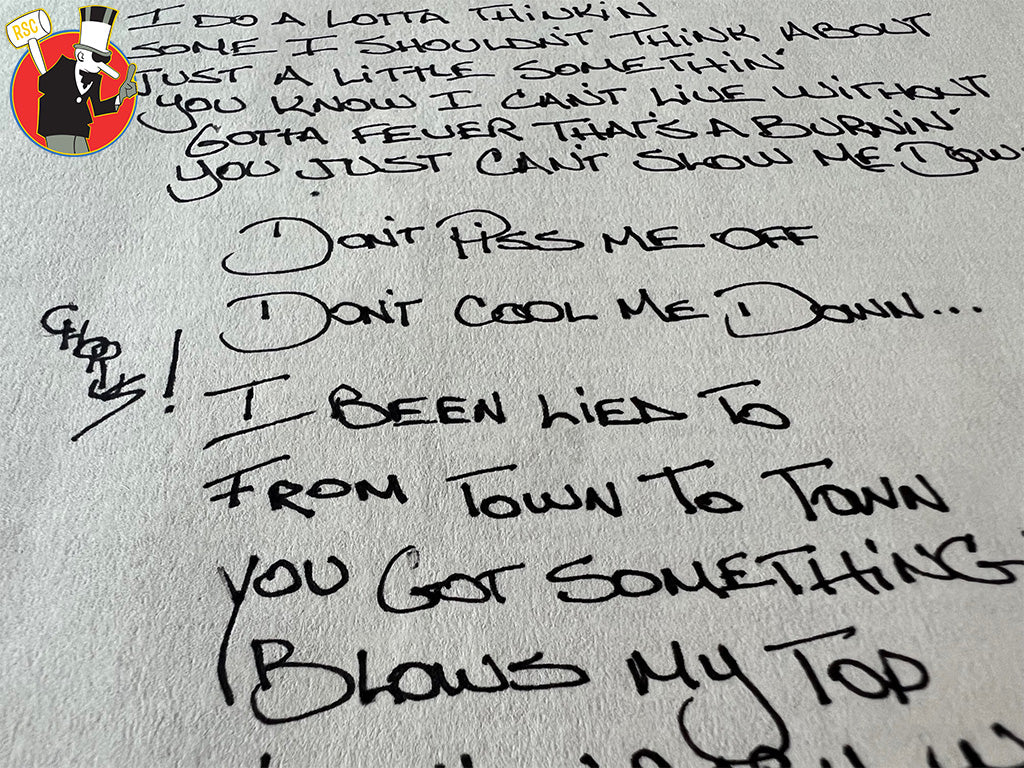 RSC
I DO A LOTTA THINKIN
SOME I SHOULDN'T THINK ABOUT
JUST A LITTLE SOMETHIN'
YOU KNOW I CAN'T LIVE WITHOUT
GOTTA FEVER THAT'S A BURNIN'
YOU JUST CAN'T SLOW ME DOW
DON'T PISS ME OFF
DON'T COOL ME DOWN...
I BEEN LIED TO
FROM TOWN TO TOWN
YOU GOT SOMETHING
BLOWS MY TOP